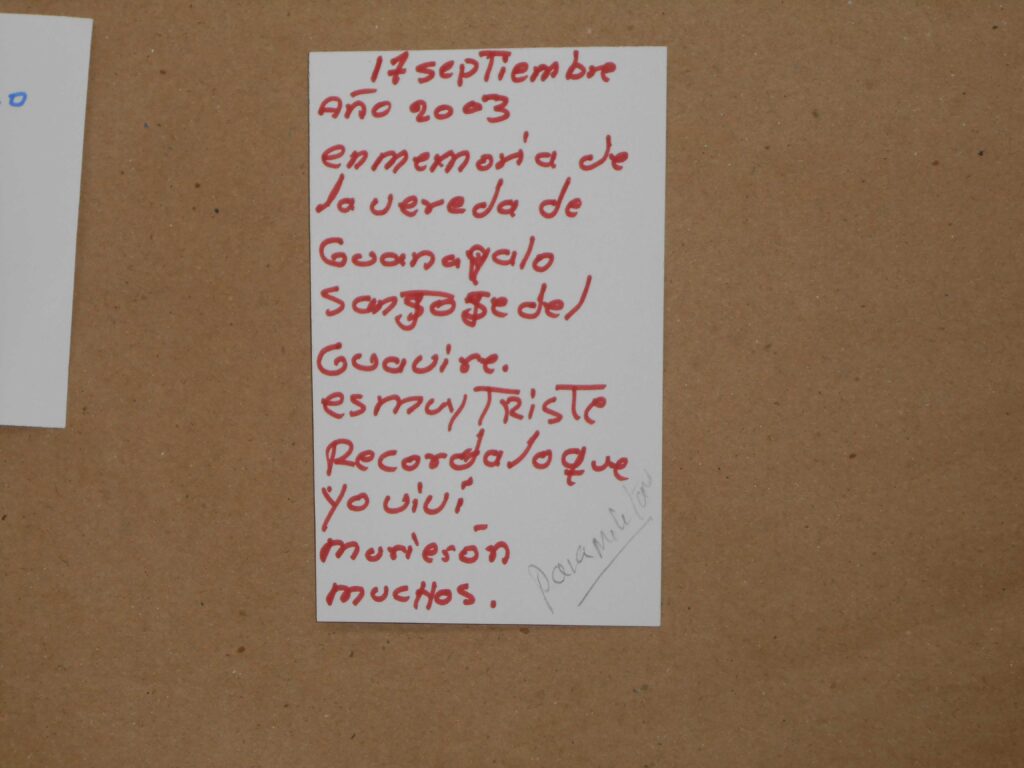 17 septiembre
Año 2003
en memoria de
la vereda de
Guanapalo
San Jose del
Guavire.
es muy TRISTE
Recorda lo que
yo viví
murierón
mucHos.